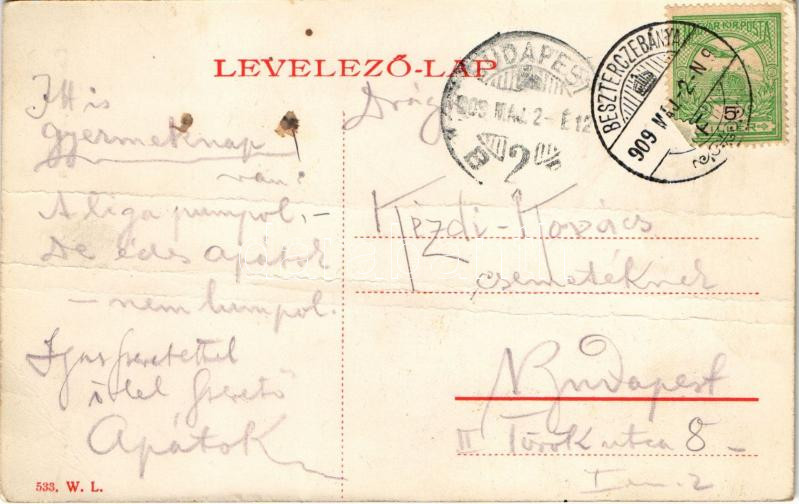 LEVELEZŐ-LAP
BUDAPEST
909 MÁJ. 2 - É 12
B 2
BESZTERCZEBÁNYA
909 MÁJ. 2 - N 9
MAGYAR KIR. POSTA
5
Itt is
gyermeknap
van:
A liga pumpol,-
De édes apátok
- nem lumpol.
Igaz szeretettel
ölel szerető
Apátok
Drág
Kézdi-Kovács
csemetéknek
Budapest
II Török utca 8 -
I em. 2
533. W. L.